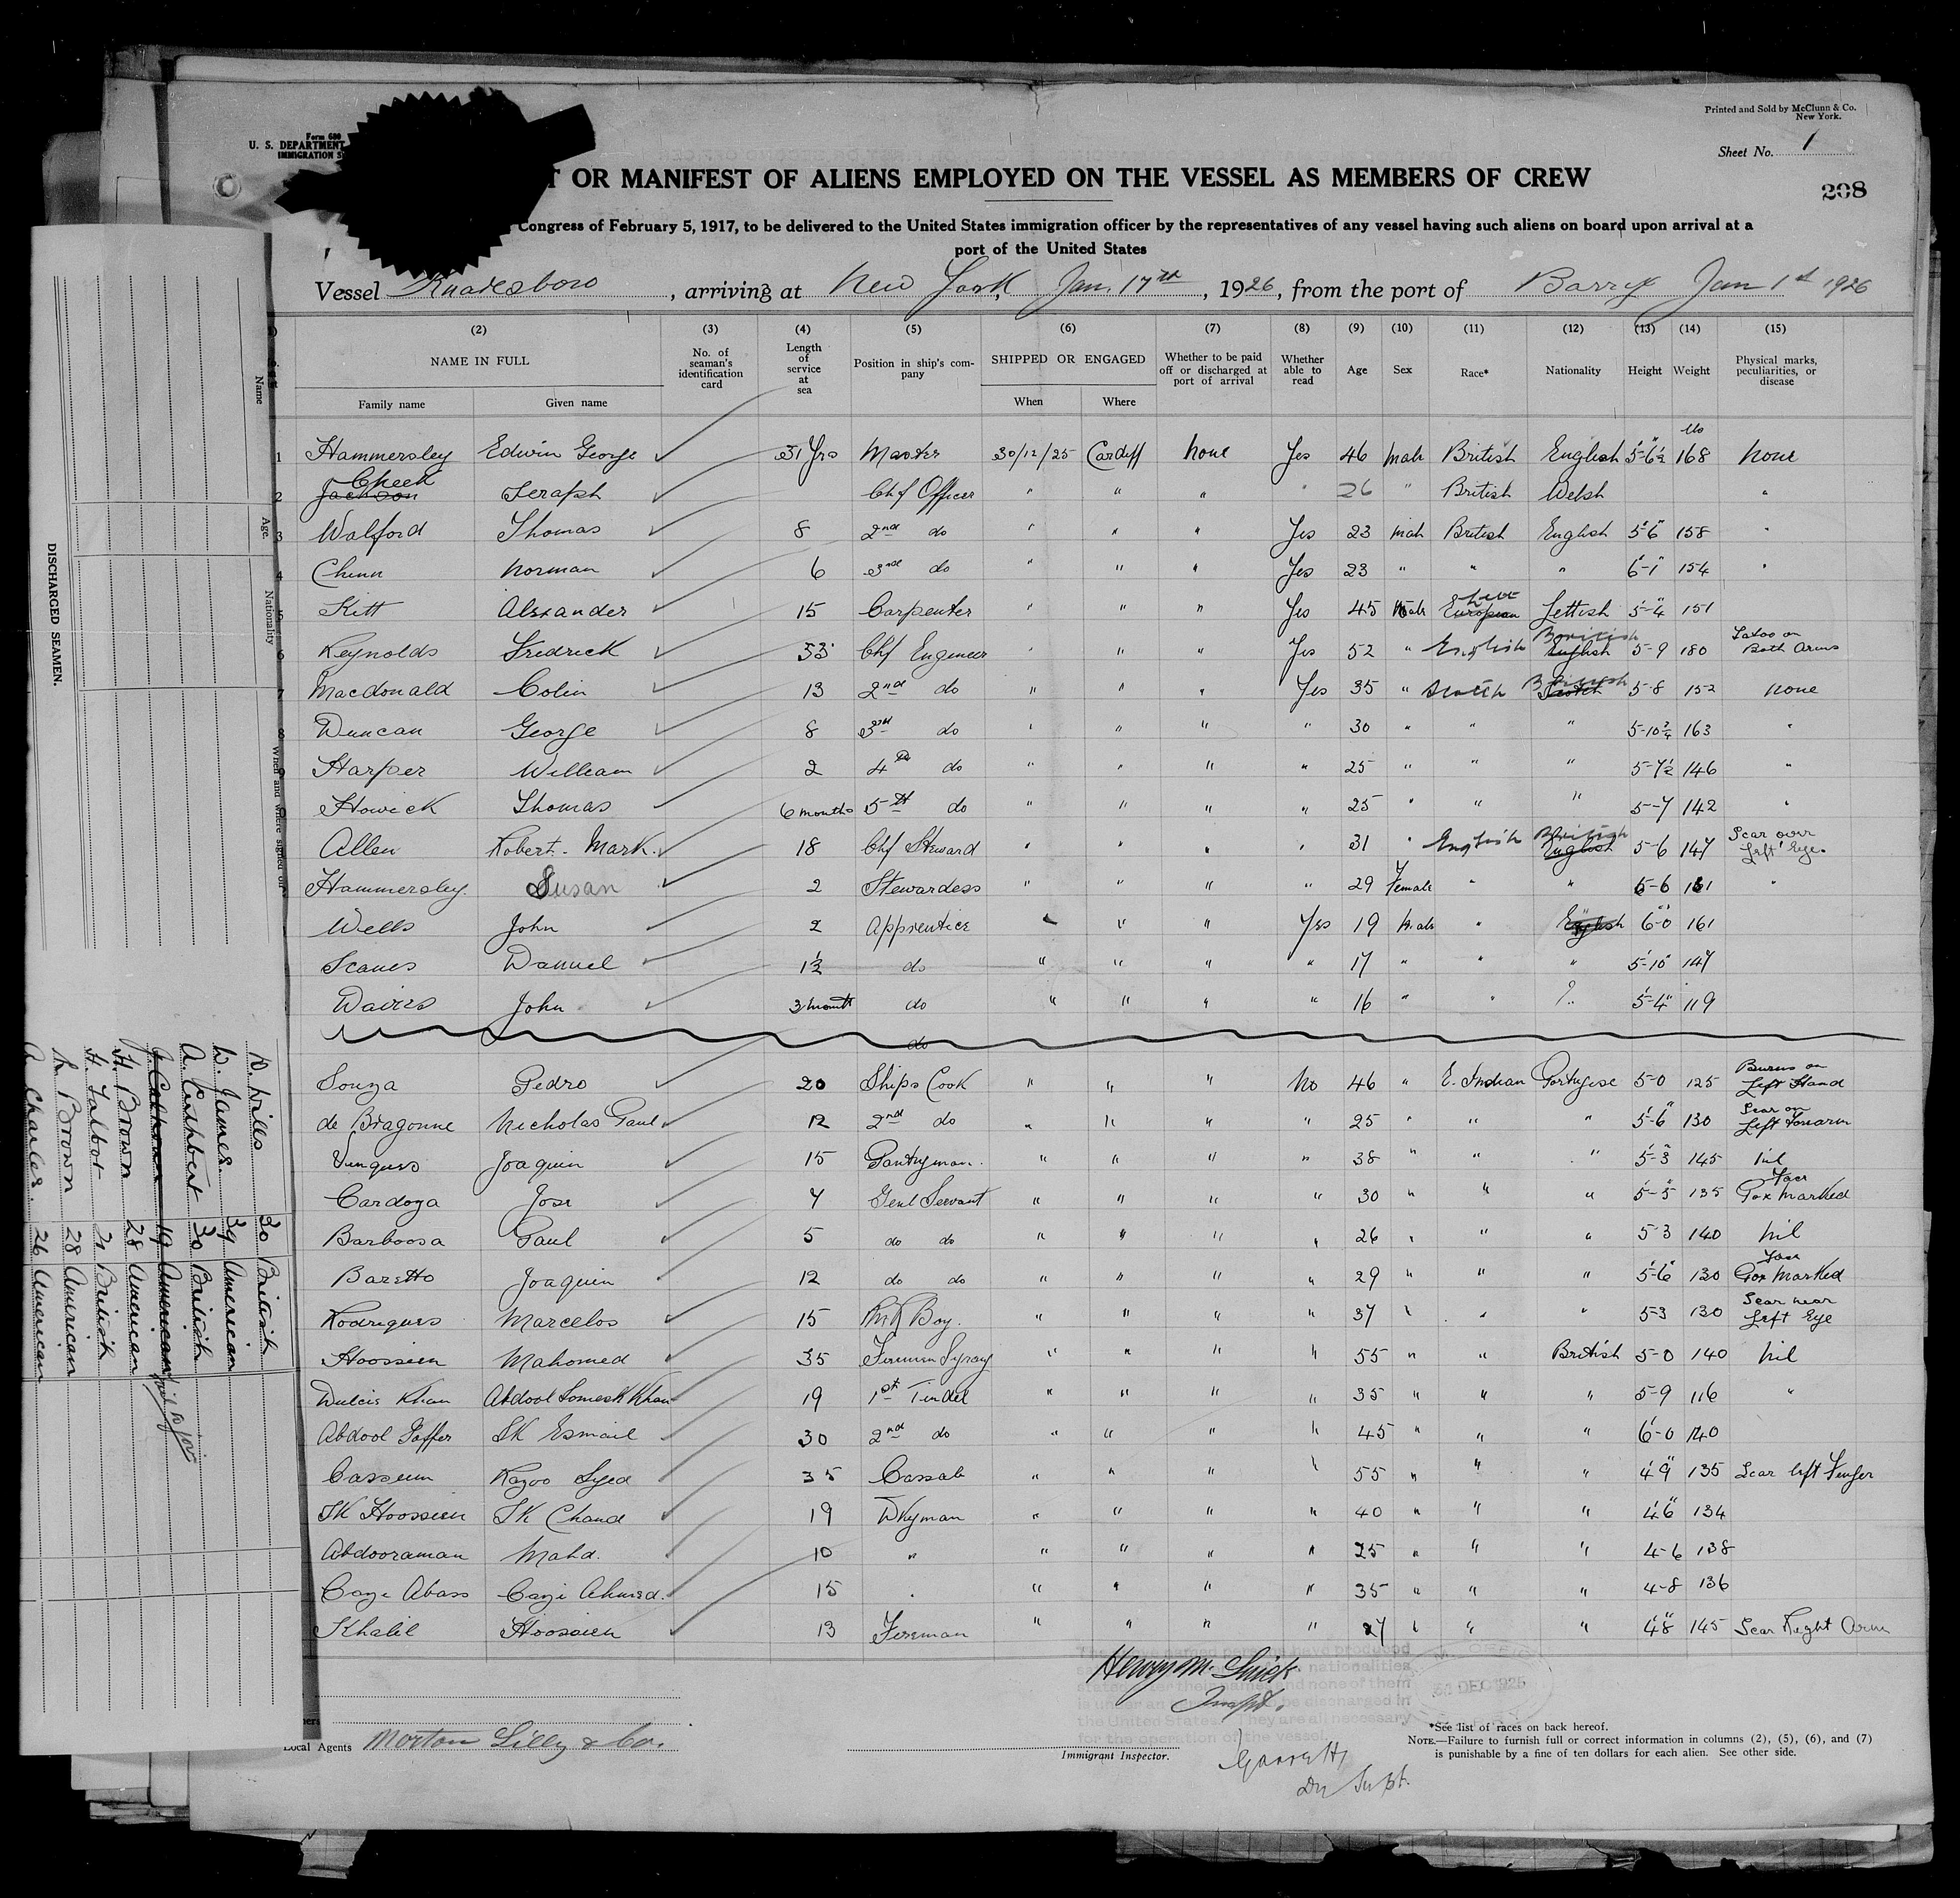 Printed and Sold by McClunn & Co.
New York.
Form 680
U. S. DEPARTMENT
IMMIGRATION S
Sheet No. 1
T OR MANIFEST OF ALIENS EMPLOYED ON THE VESSEL AS MEMBERS OF CREW
208
Congress of February 5, 1917, to be delivered to the United States immigration officer by the representatives of any vessel having such aliens on board upon arrival at a
port of the United States
Vessel Knaresboro, arriving at New York, Jan. 17th, 1926, from the port of Barry Jan 1st 1926
(2) (3) (4) (5) (6) (7) (8) (9) (10) (11) (12) (13) (14) (15)
NAME IN FULL No. of seaman's identification card Length of service at sea Position in ship's company SHIPPED OR ENGAGED Whether to be paid off or discharged at port of arrival Whether able to read Age Sex Race* Nationality Height Weight Physical marks, peculiarities, or disease
Family name Given name When Where
lbs
1 Hammersley Edwin George ✓ 31 Yrs Master 30/12/25 Cardiff None Yes 46 Male British English 5'-6½" 168 None
2 Jackson Cheek Seraph ✓ Chf Officer " " " " 26 " British Welsh "
3 Walford Thomas ✓ 8 2nd do " " " Yes 23 Male British English 5'-6" 158 "
4 Chinn Norman ✓ 6 3rd do " " " Yes 23 " " " 6'-1" 154 "
5 Kitt Alexander ✓ 15 Carpenter " " Yes 45 Male European Lettish 5'-4" 151
6 Reynolds Fredrick ✓ 33 Chf Engineer " " " Yes 52 " English English British 5-9 180 Tatoo on Both Arms
7 Macdonald Colin ✓ 13 2nd do " " " Yes 35 " Scotch Scotch British 5-8 152 None
8 Duncan George ✓ 8 3rd do " " " " 30 " " " 5-10¾ 163 "
9 Harper William ✓ 2 4th do " " " " 25 " " " 5-7½ 146 "
Howick Thomas ✓ 6 months 5th do " " " " 25 " " " 5-7 142 "
Allen Robert Mark. ✓ 18 Chf Steward " " " " 31 " English English British 5-6 147 Scar over Left Eye.
Hammersley. Susan ✓ 2 Stewardess " " " " 29 Female " " 5-6 161 "
Wells John ✓ 2 Apprentice " " " Yes 19 Male " English 6'-0" 161
Scanes Daniel ✓ 1½ do " " " " 17 " " " 5'-10" 147
Davies John ✓ 3 month do " " " " 16 " " " 5'-4" 119
do
Souza Pedro ✓ 20 Ships Cook " " " No 46 " E. Indian Portugese 5-0 125 Burns on Left Hand
de Bragonne Nicholas Paul ✓ 12 2nd do " " " " 25 " " " 5'-6" 130 Scar on Left Forearm
Joaquin ✓ 15 Pantryman. " " " " 38 " " " 5'-3" 145 Nil
Cardoza Jose ✓ 7 Genl Servant " " " " 30 " " " 5'-5" 135 Face Pox Marked
Barboosa Paul ✓ 5 do do " " " " 26 " " " 5-3 140 Nil
Baretto Joaquin ✓ 12 do do " " " " 29 " " " 5'-6" 130 Face Pox Marked
Rodrigues Marcelos ✓ 15 Boy. " " " " 37 " " " 5-3 130 Scar near Left Eye
Hoossien Mahomed ✓ 35 Firemen Syrang " " " " 55 " " British 5-0 140 Nil
Khan Abdool Khan 19 1st Tindel " " " " 35 " " " 5-9 116 "
Abdool Gaffer SK Esmail ✓ 30 2nd do " " " " 45 " " " 6'-0 140
Cassum Kazoo Syed ✓ 35 Cassab " " " " 55 " " " 4'9" 135 Scar left Finger
SK Hoossien SK Chand ✓ 19 Dkyman " " " " 40 " " " 4'6" 134
Abdooraman Mahd. ✓ 10 " " " " " 25 " " " 4-6 138
Caye Abass Cazi Ahmed. ✓ 15 " " " " " 35 " " " 4-8 136
Khalil Hoossien ✓ 13 Fireman " " " " 27 " " " 4'8" 145 Scar Right Arm
DISCHARGED SEAMEN.
Name
Age.
Nationality
When and where signed on
D. Wills 30 British
W. James. 39 American
A. Cuthbert 30 British
J. Calhoun 19 American
H. Brown 28 American
H. Talbot 21 British
L. Brown 28 American
A. Charles. 26 American
Henry M. Quick
Inspt.
31 DEC 1925
Local Agents Morton Lilly & Co.
Immigrant Inspector.
*See list of races on back hereof.
NOTE.—Failure to furnish full or correct information in columns (2), (5), (6), and (7)
is punishable by a fine of ten dollars for each alien. See other side.